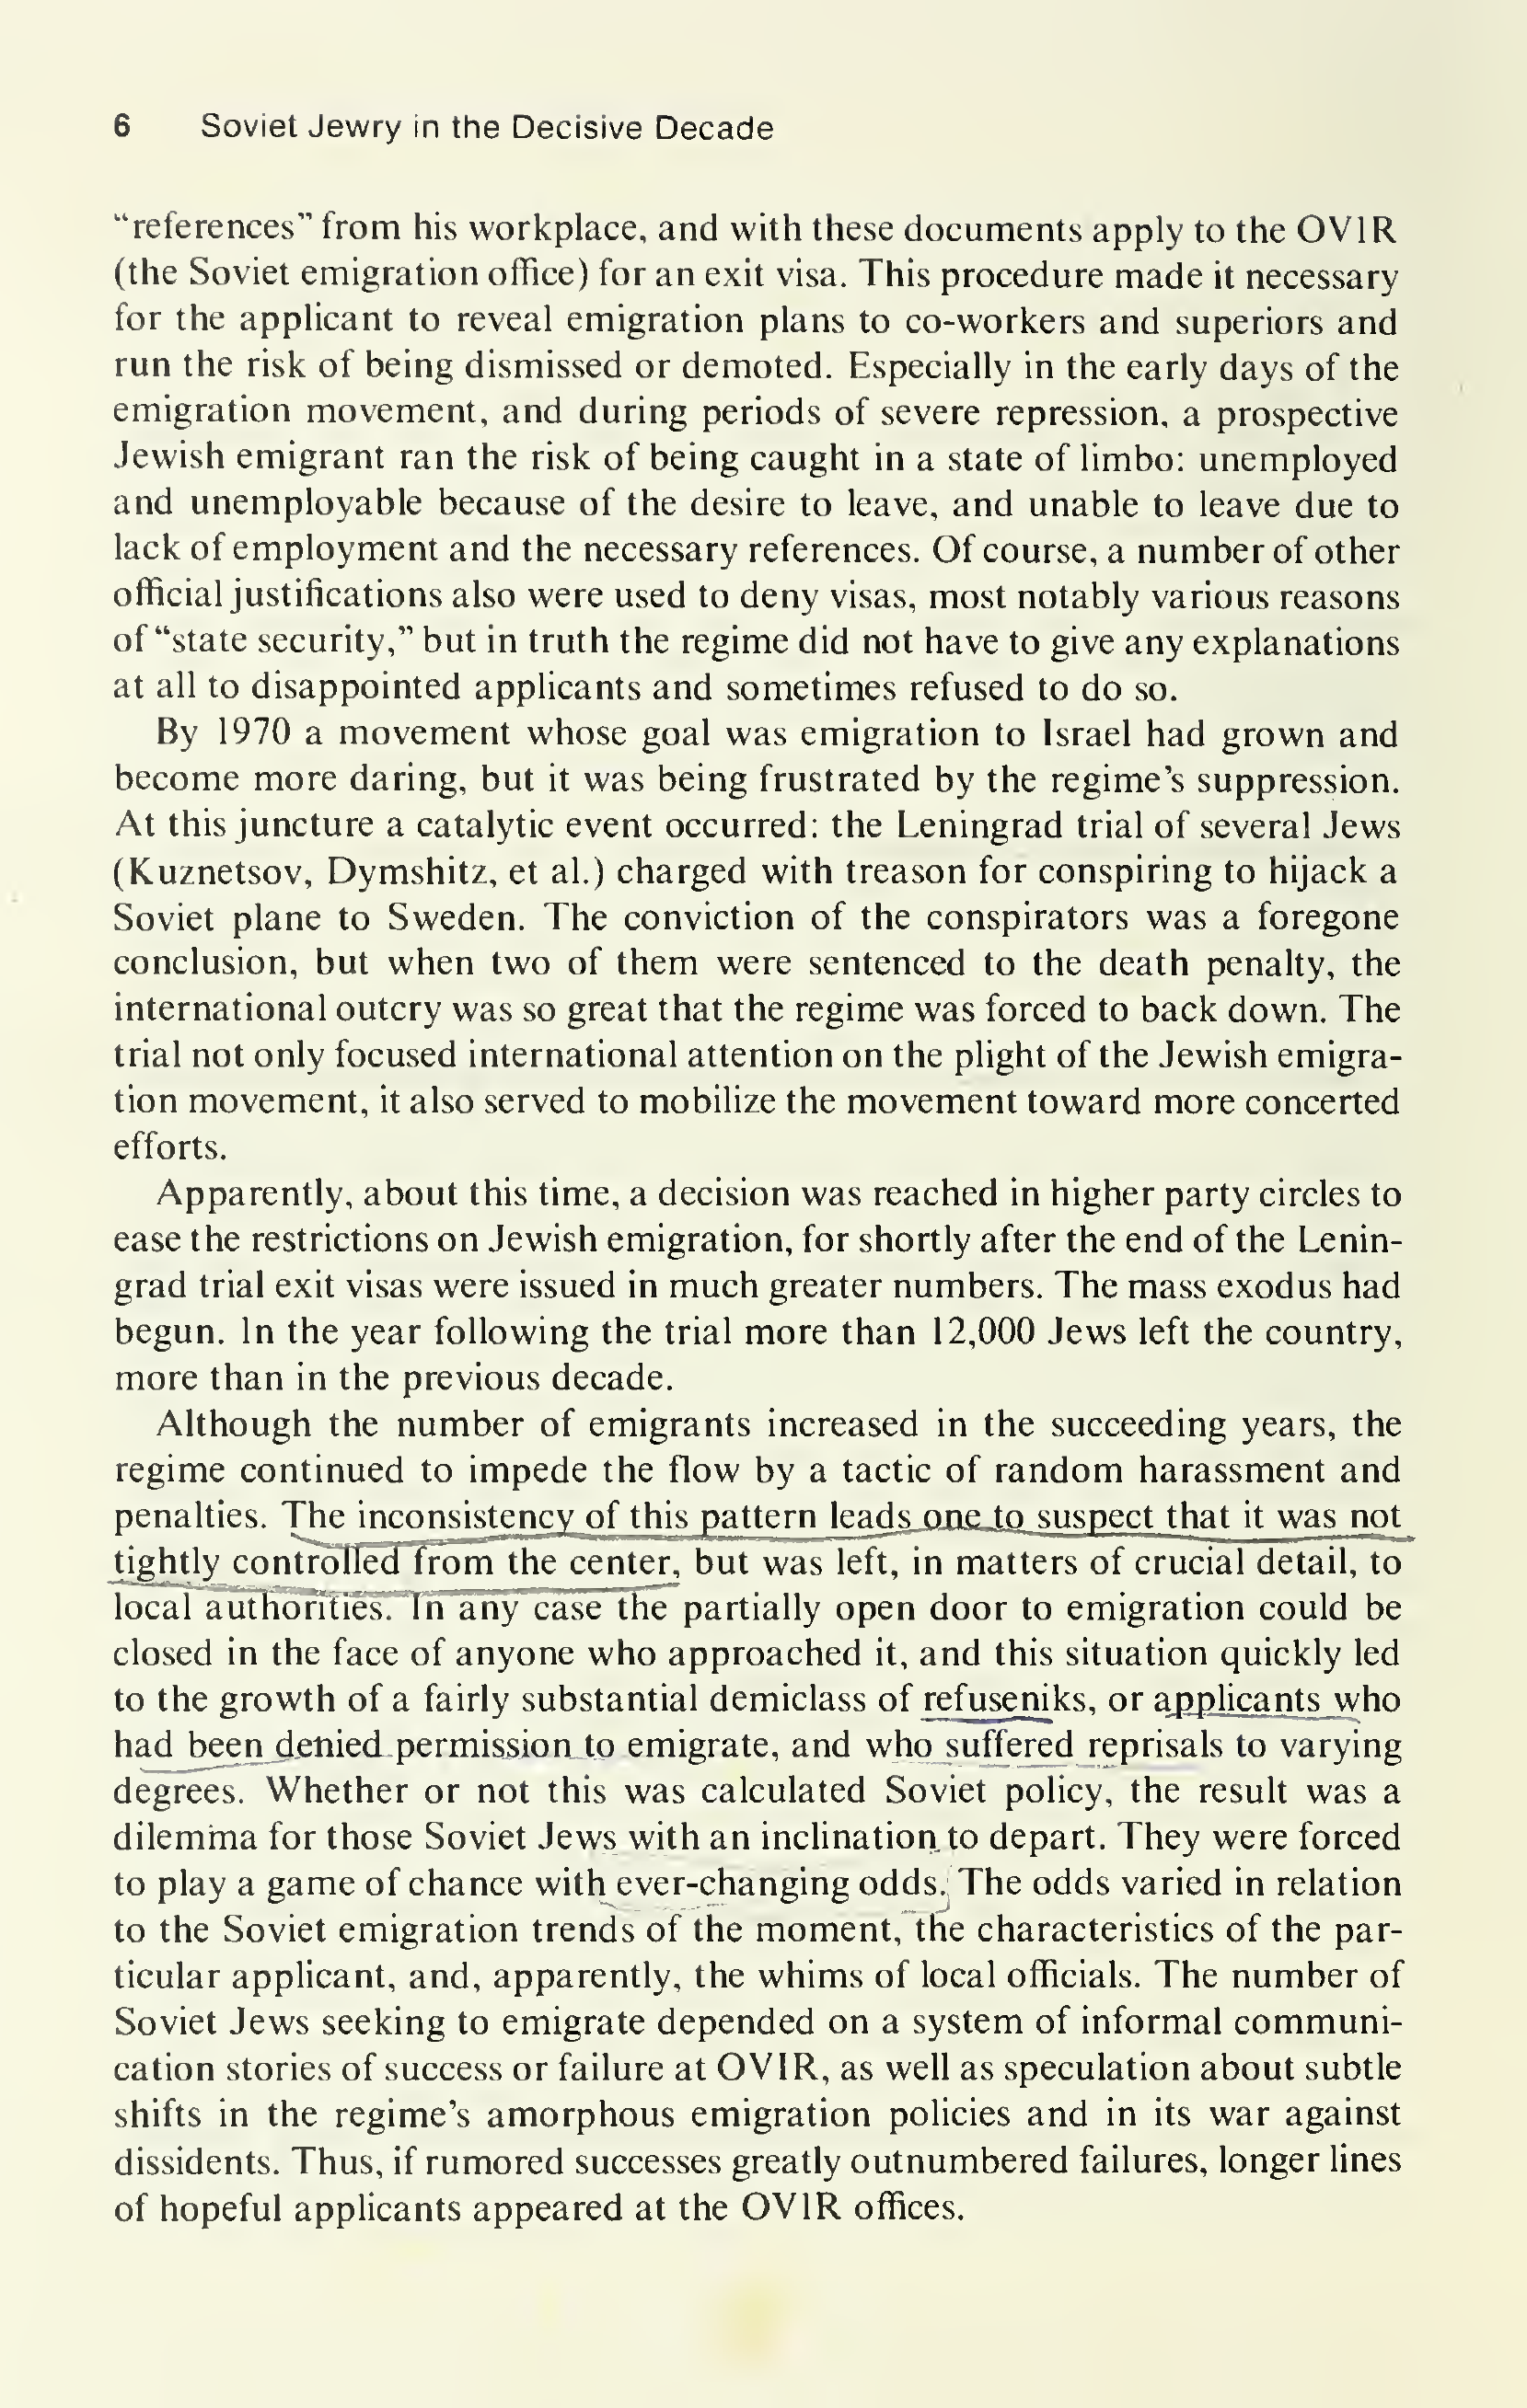 6 Soviet Jewry in the Decisive Decade
"references" from his workplace, and with these documents apply to the OVIR
(the Soviet emigration office) for an exit visa. This procedure made it necessary
for the applicant to reveal emigration plans to co-workers and superiors and
run the risk of being dismissed or demoted. Especially in the early days of the
emigration movement, and during periods of severe repression, a prospective
Jewish emigrant ran the risk of being caught in a state of limbo: unemployed
and unemployable because of the desire to leave, and unable to leave due to
lack of employment and the necessary references. Of course, a number of other
official justifications also were used to deny visas, most notably various reasons
of "state security," but in truth the regime did not have to give any explanations
at all to disappointed applicants and sometimes refused to do so.
By 1970 a movement whose goal was emigration to Israel had grown and
become more daring, but it was being frustrated by the regime's suppression.
At this juncture a catalytic event occurred: the Leningrad trial of several Jews
(Kuznetsov, Dymshitz, et al.) charged with treason for conspiring to hijack a
Soviet plane to Sweden. The conviction of the conspirators was a foregone
conclusion, but when two of them were sentenced to the death penalty, the
international outcry was so great that the regime was forced to back down. The
trial not only focused international attention on the plight of the Jewish emigra-
tion movement, it also served to mobilize the movement toward more concerted
efforts.
Apparently, about this time, a decision was reached in higher party circles to
ease the restrictions on Jewish emigration, for shortly after the end of the Lenin-
grad trial exit visas were issued in much greater numbers. The mass exodus had
begun. In the year following the trial more than 12,000 Jews left the country,
more than in the previous decade.
Although the number of emigrants increased in the succeeding years, the
regime continued to impede the flow by a tactic of random harassment and
penalties. The inconsistency of this pattern leads one to suspect that it was not
tightly controlled from the center, but was left, in matters of crucial detail, to
local authorities. In any case the partially open door to emigration could be
closed in the face of anyone who approached it, and this situation quickly led
to the growth of a fairly substantial demiclass of refuseniks, or applicants who
had been denied permission to emigrate, and who suffered reprisals to varying
degrees. Whether or not this was calculated Soviet policy, the result was a
dilemma for those Soviet Jews with an inclination to depart. They were forced
to play a game of chance with ever-changing odds. The odds varied in relation
to the Soviet emigration trends of the moment, the characteristics of the par-
ticular applicant, and, apparently, the whims of local officials. The number of
Soviet Jews seeking to emigrate depended on a system of informal communi-
cation stories of success or failure at OVIR, as well as speculation about subtle
shifts in the regime's amorphous emigration policies and in its war against
dissidents. Thus, if rumored successes greatly outnumbered failures, longer lines
of hopeful applicants appeared at the OVIR offices.